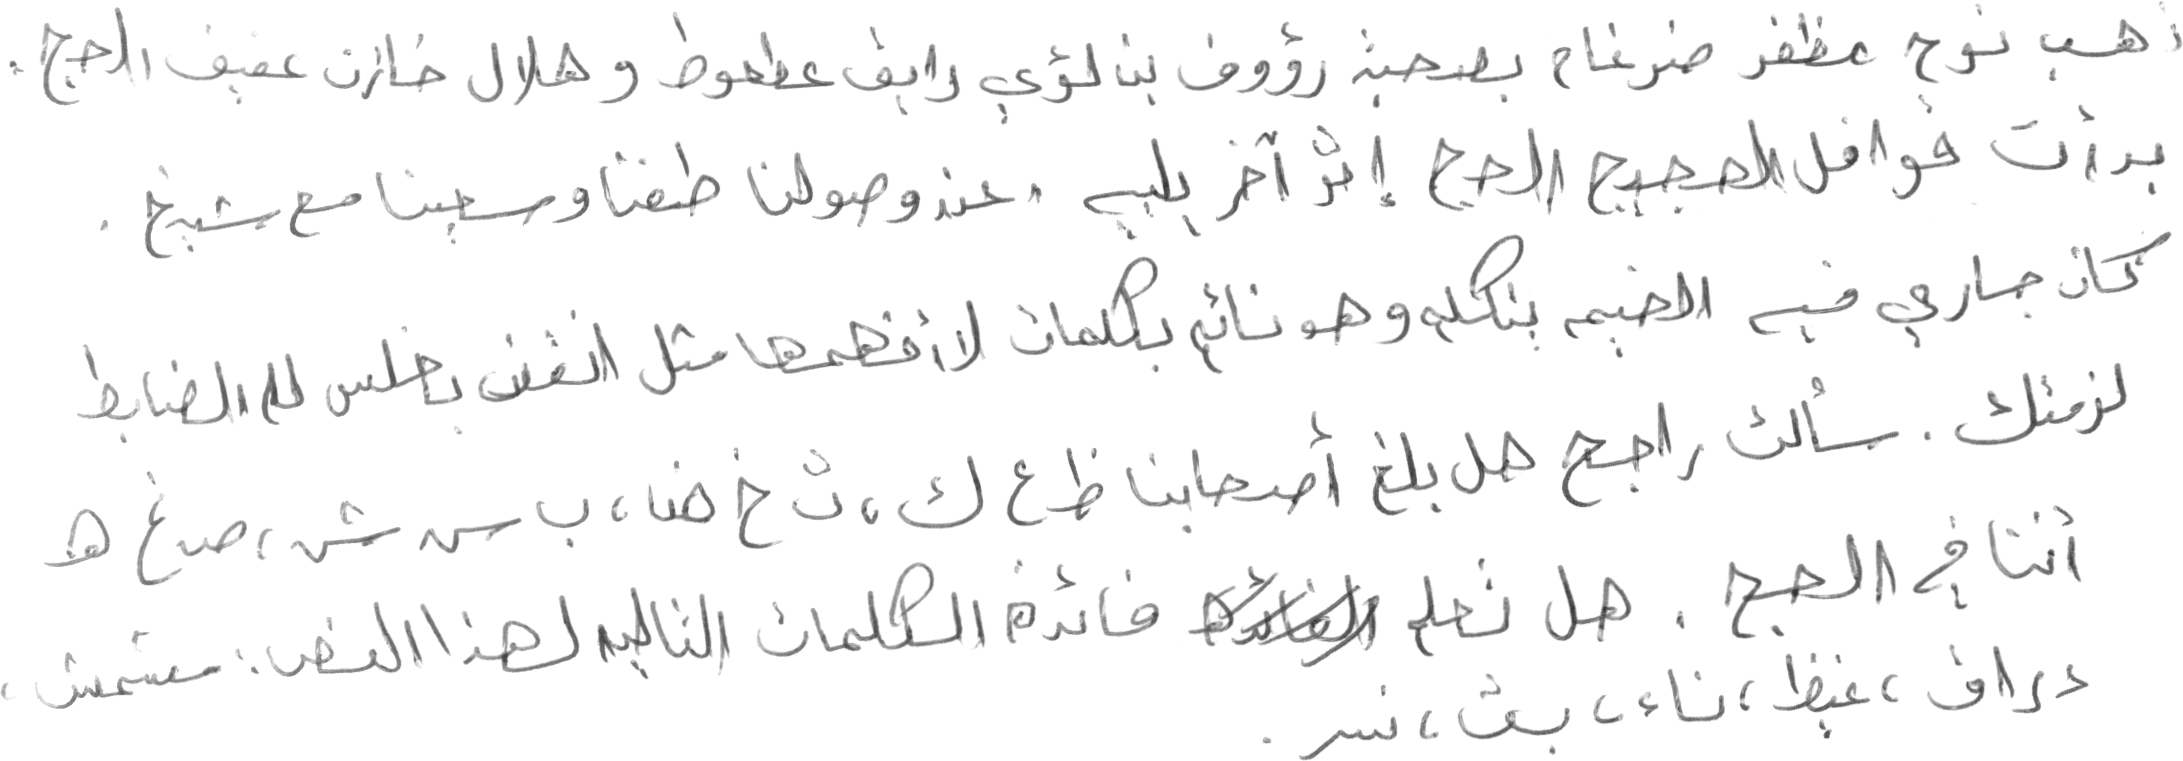 ذهب نوح مظفر ضرغام بصحبة رؤوف بن لؤي رايق عطعوط و هلال خازن عفيف الحج .
بدأت قوافل الحجيج الحج إثر آخر يلبي ، عند وصولنا طفنا وسعينا مع شيخ .
كان جاري في الخيمه يتكلم وهو نائم بكلمات لا أفهمها مثل انقفن بخلس لك الضابط
لزمتك . سألت راجح هل بلغ أصحابنا ظ ع ك ، ث خ ض ، ب س ش ، ص غ هـ
أننا في الحج . هل تعلم فائدة الكلمات التاليه لهذا النص : مشمش ،
دراق ، غيظ ، ناء ، بث ، نسر .